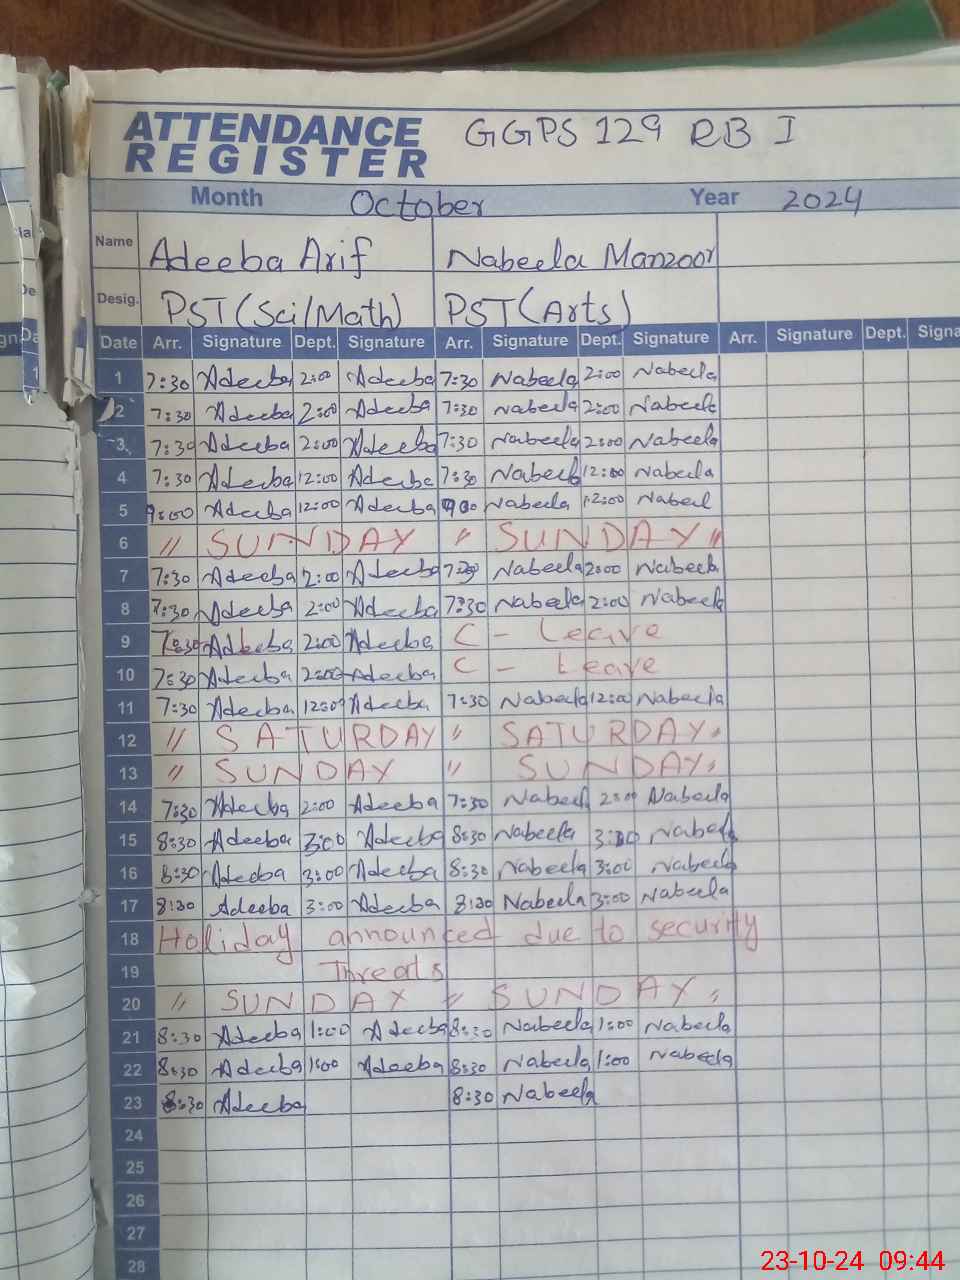 ATTENDANCE REGISTER GGPS 129 RB I
Month October Year 2024
Name Adeeba Arif Nabeela Manzoor
Desig. PST(Sci/Math) PST(Arts)
Date Arr. Signature Dept. Signature Arr. Signature Dept. Signature Arr. Signature Dept. Signa
1 7:30 Adeeba 2:00 Adeeba 7:30 Nabeela 2:00 Nabeela
2 7:30 Adeeba 2:00 Adeeba 7:30 Nabeela 2:00 Nabeela
3 7:30 Adeeba 2:00 Adeeba 7:30 Nabeela 2:00 Nabeela
4 7:30 Adeeba 12:00 Adeeba 7:30 Nabeela 12:00 Nabeela
5 9:00 Adeeba 12:00 Adeeba 900 Nabeela 12:00 Nabeel
6 " SUNDAY " SUNDAY "
7 7:30 Adeeba 2:00 Adeeba 7:30 Nabeela 2:00 Nabeela
8 7:30 Adeeba 2:00 Adeeba 7:30 Nabeela 2:00 Nabeela
9 7:30 Adeeba 2:00 Adeeba C - Leave
10 7:30 Adeeba 2:00 Adeeba C - Leave
11 7:30 Adeeba 12:00 Adeeba 7:30 Nabeela 12:00 Nabeela
12 " SATURDAY " SATURDAY "
13 " SUNDAY " SUNDAY "
14 7:30 Adeeba 2:00 Adeeba 7:30 Nabeel 2:00 Nabeela
15 8:30 Adeeba 3:00 Adeeba 8:30 Nabeela 3:00 Nabeela
16 8:30 Adeeba 3:00 Adeeba 8:30 Nabeela 3:00 Nabeela
17 8:30 Adeeba 3:00 Adeeba 8:30 Nabeela 3:00 Nabeela
18 Holiday announced due to security
19 Threats
20 " SUNDAY " SUNDAY "
21 8:30 Adeeba 1:00 Adeeba 8:30 Nabeela 1:00 Nabeela
22 8:30 Adeeba 1:00 Adeeba 8:30 Nabeela 1:00 Nabeela
23 8:30 Adeeba 8:30 Nabeela
24
25
26
27
28
23-10-24 09:44